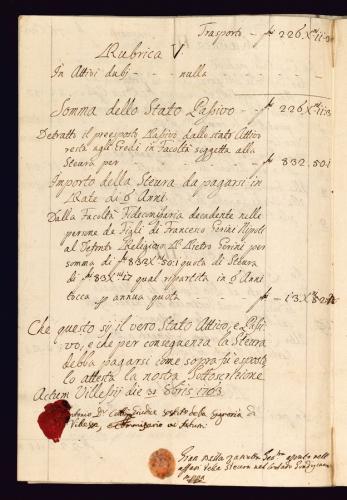 Trasporto - f 226 Xni 11-3
Rubrica V
In Attivi dubj - - - nulla
Somma dello Stato Passivo - - f 226 Xni 11:3
Detratto il preesposto Passivo dallo stato Attivo
resta agli Eredi in Facoltà soggetta alla
Steura per - f 832.50.1
Importo della Steura da pagarsi in
Rate da 6 Anni
Dalla Facoltà Fidecomissaria decadente nelle
persone de Figli di Francesco Gerini Nipoti
al Defonto Religioso Pietro Gerini per
somma di f 832 50:1 quota di Steura
di f 83 X 17 qual ripartita in 6 Anni
tocca per annua quota - f - 13. X
Che questo sij il vero Stato Attivo, e Passi-
vo, e che per conseguenza la Steura
debba pagarsi come sopra si è esposto
lo attesta la nostra Sottoscrizione
Actum Villessij die 31 Xbris 1783
Antonio Giudice della
Villesse,
Gian
affari della Steura nel Contado